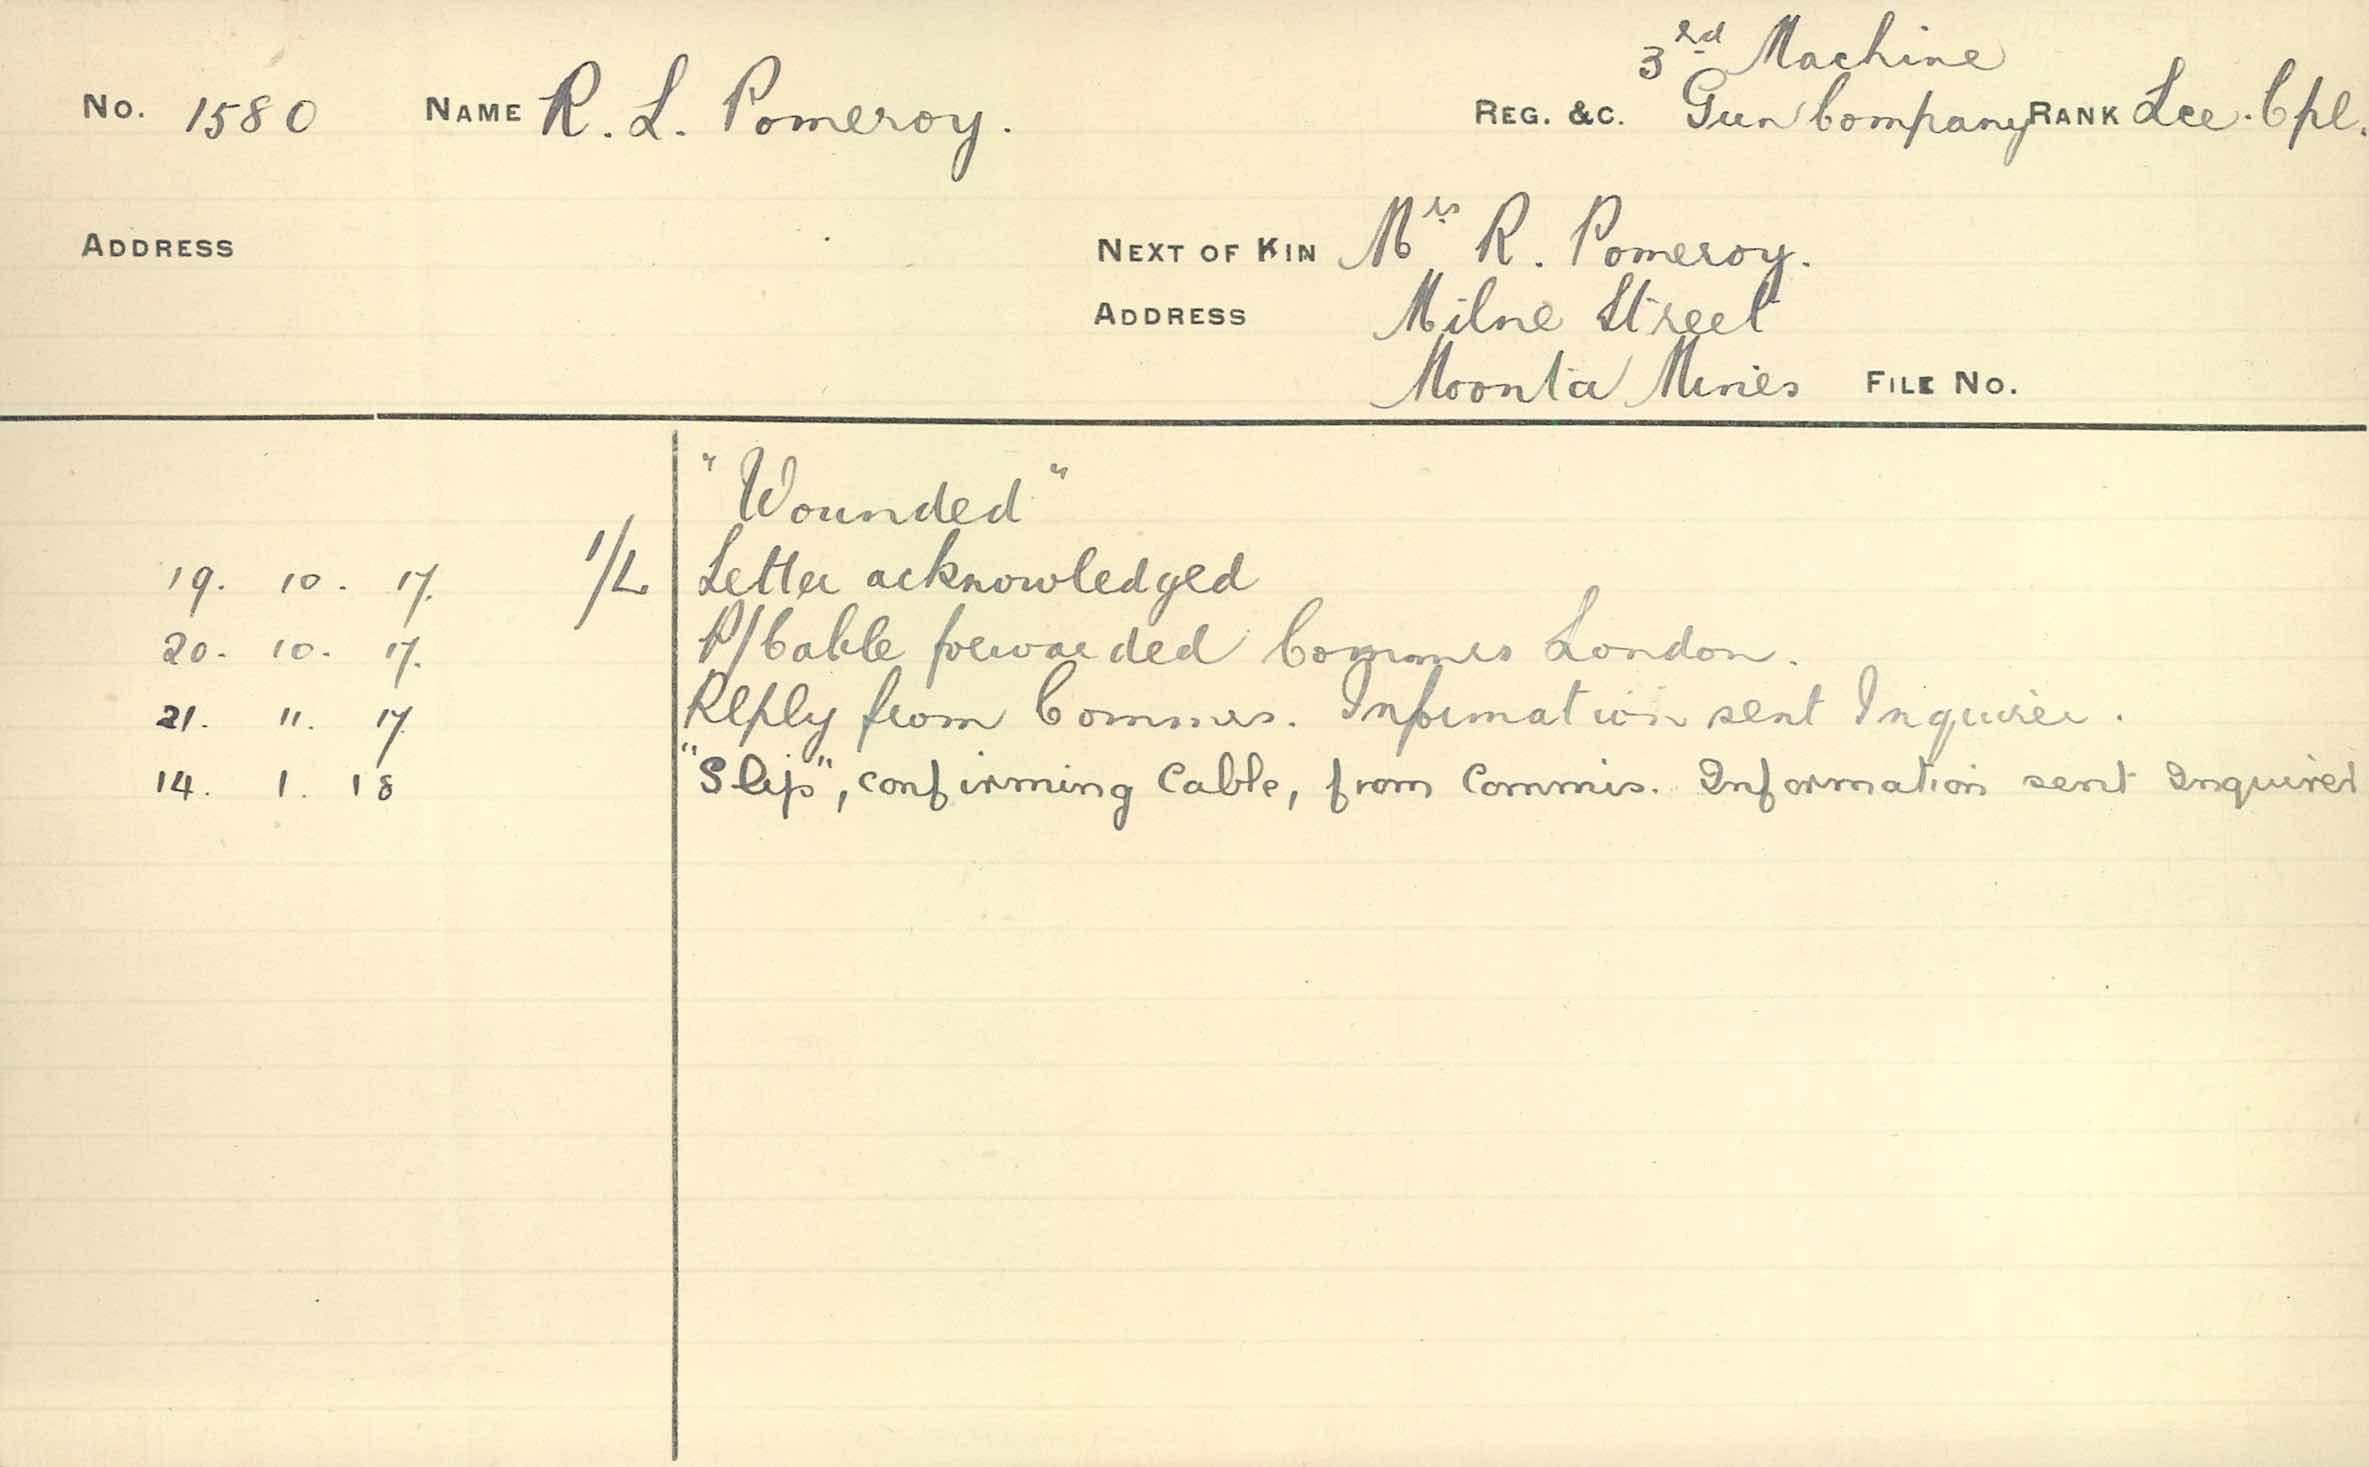 No. 1580 NAME R. L. Pomeroy. REG. &C. 3rd Machine Gun Company RANK Lce. Cpl.
ADDRESS NEXT OF KIN Mrs R. Pomeroy.
ADDRESS Milne Street
Moonta Mines FILE No.
"Wounded"
19. 10. 17. 1/L Letter acknowledged
20. 10. 17. P/Cable forwarded Commrs London.
21. 11. 17 Reply from Commrs. Information sent Inquirer.
14. 1. 18 "Slip", confirming Cable, from Commis. Information sent Inquirer